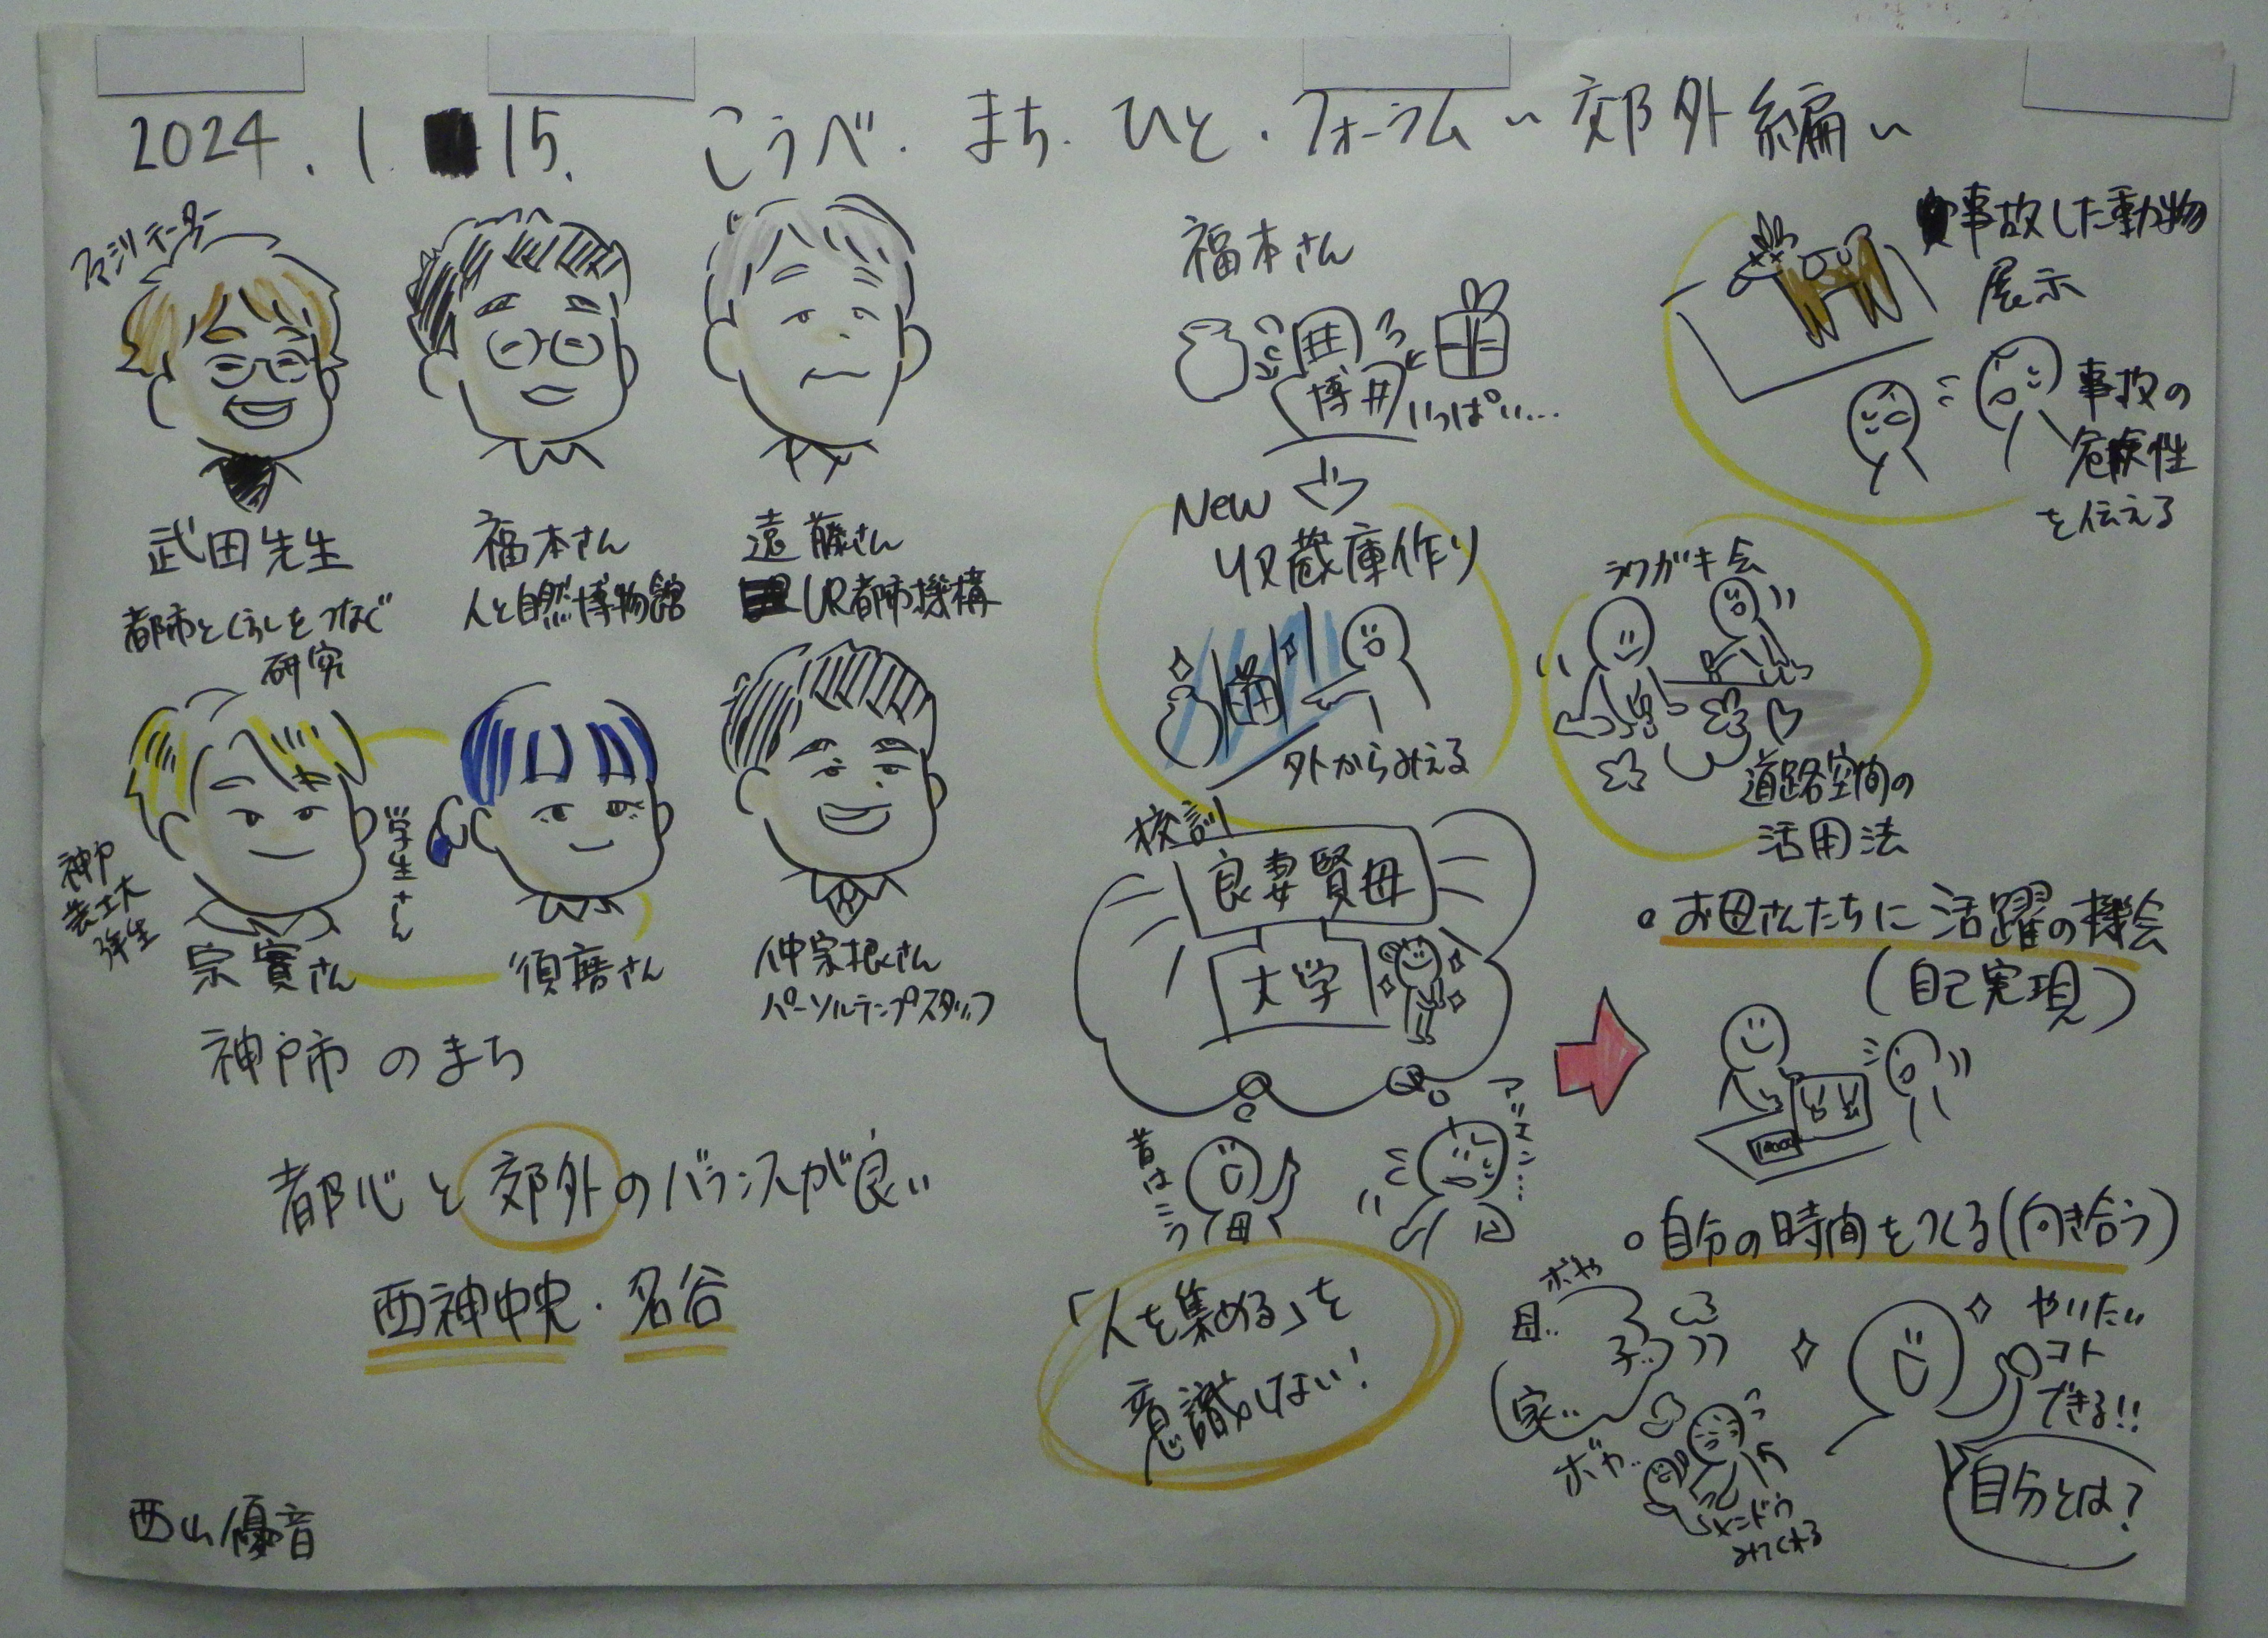 2024.1.15. こうべ.まち.ひと.フォーラム〜郊外編〜
武田先生
都市とくらしをつなぐ
研究
福本さん
人と自然博物館
遠藤さん
UR都市機構
学生さん
神戸
芸工大
宗實さん
須磨さん
仲宗根さん
パーソルテンプスタッフ
神戸市のまち
都心と郊外のバランスが良い
西神中央・名谷
西山優音
福本さん
博
いっぱい…
New
収蔵庫作り
外からみえる
事故した動物
展示
事故の
危険性
を伝える
ラクガキ会
道路空間の
活用法
校訓
良妻賢母
大学
昔はこう
母
「人を集める」を
意識しない!
お母さんたちに活躍の機会
(自己実現)
自分の時間をつくる(向き合う)
ボヤ
母..
子..
家..
ボヤ..
メンドウ
みてくれる
やりたい
コト
できる!!
自分とは?